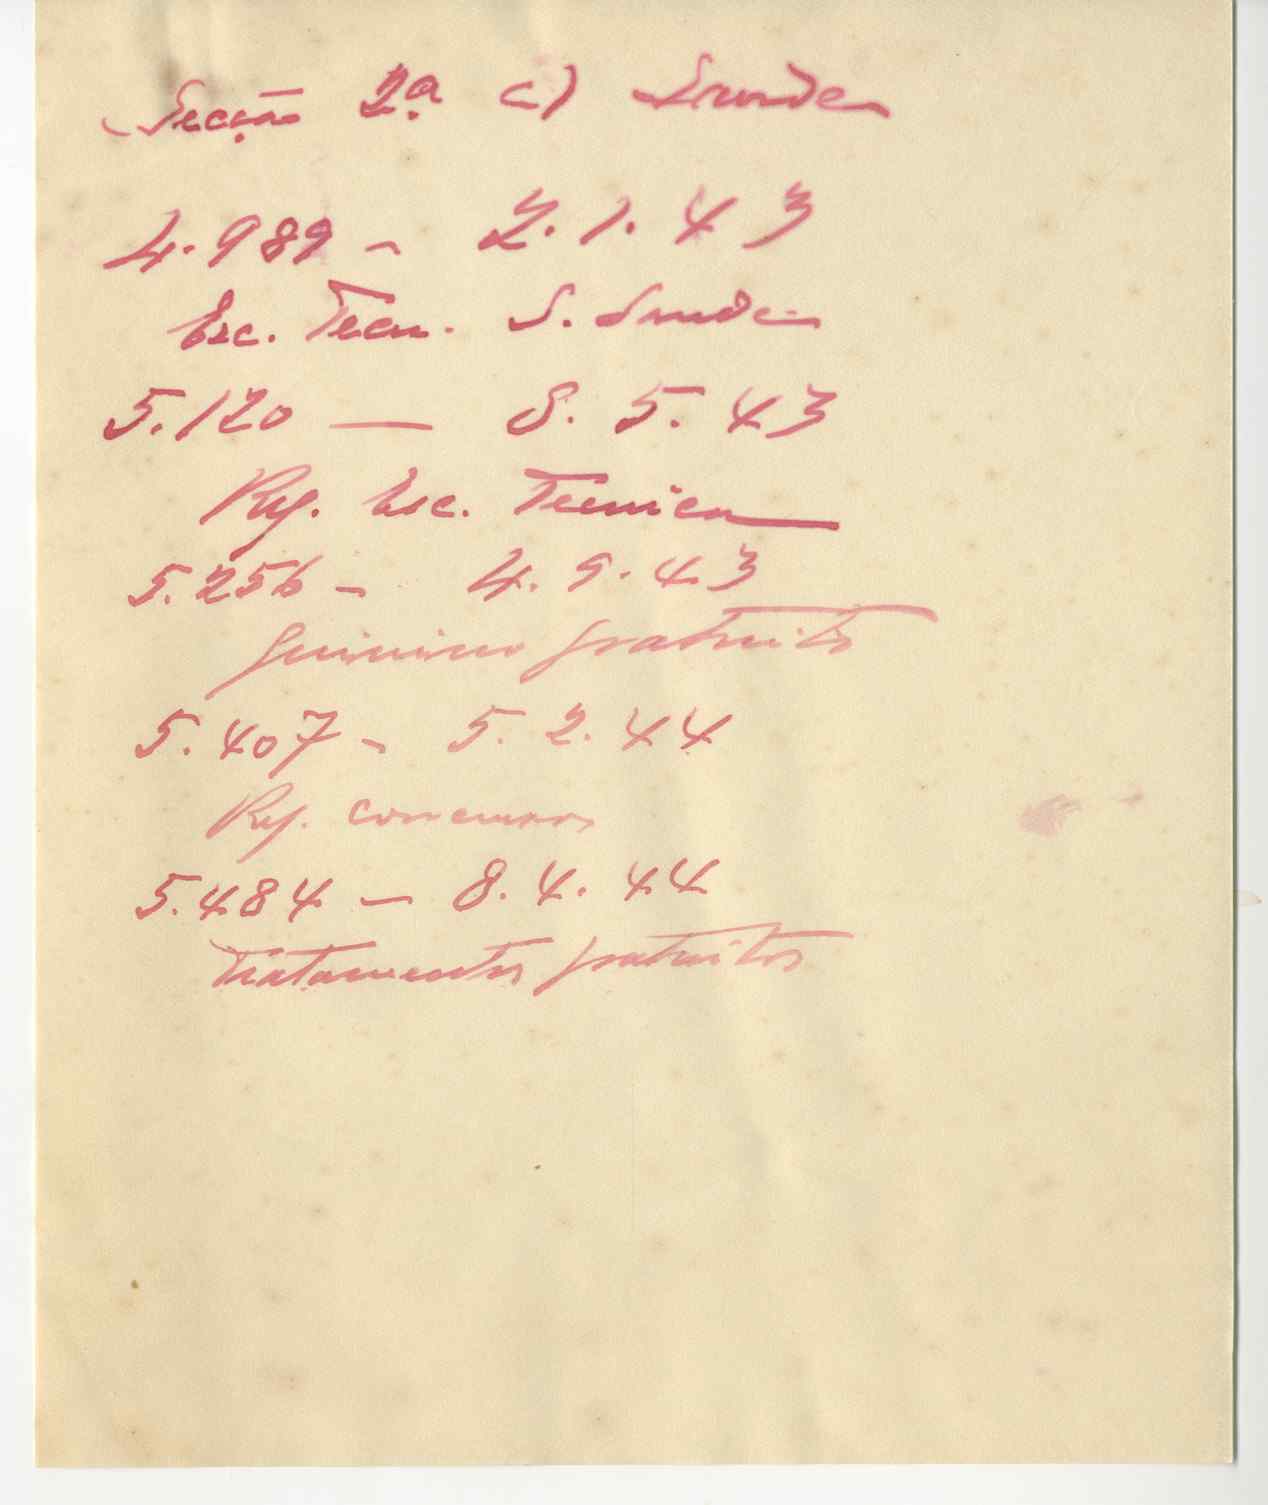 Secção 2ª c) Saude
4.989 - 2.1.43
Esc. Tecn. S. Saude
5.120 — 8.5.43
Reg. Esc. Tecnica
5.256 - 4.9.43
Quinino gratuito
5.407 - 5.2.44
Reg. concursos
5.484 - 8.4.44
Tratamentos gratuitos